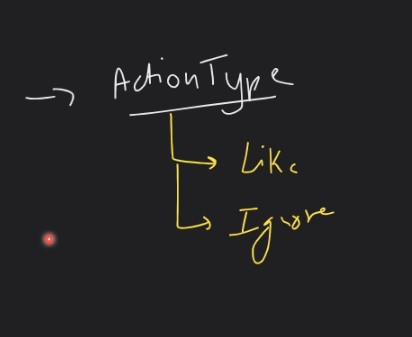 → ActionType
→ Like
→ Ignore